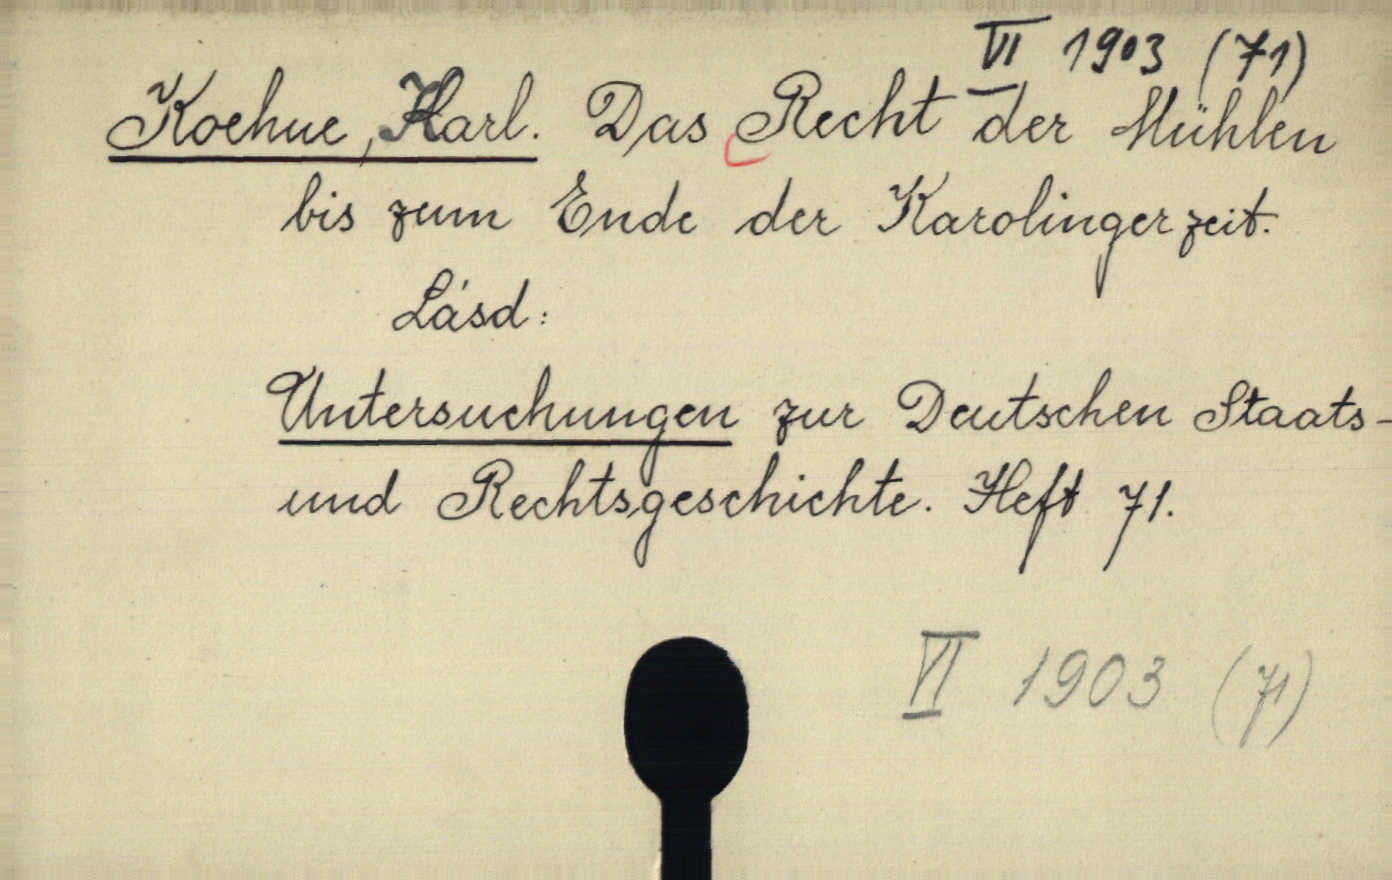 VI 1903 (71)
Koehne, Karl. Das Recht der Mühlen
bis zum Ende der Karolingerzeit.
Lásd:
Untersuchungen zur Deutschen Staats-
und Rechtsgeschichte. Heft 71.
VI 1903 (71)